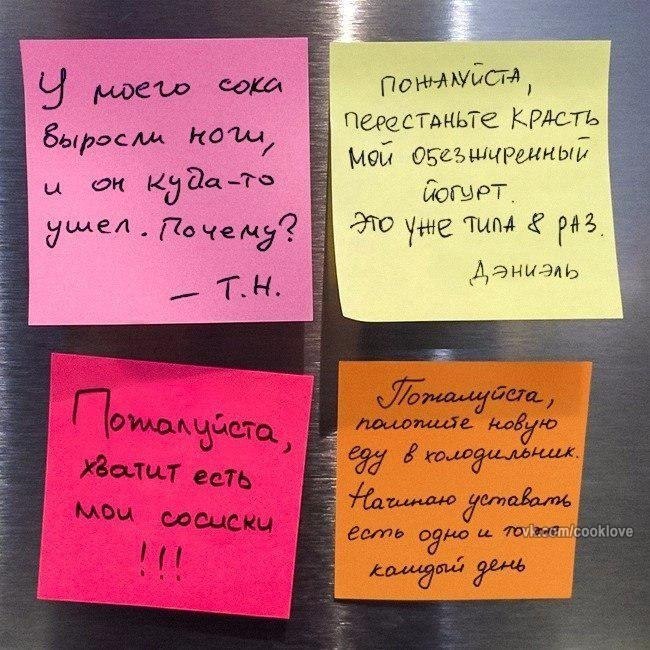 У моего сока
выросли ноги,
и он куда-то
ушел. Почему?
— Т.Н.
ПОЖАЛУЙСТА,
ПЕРЕСТАНЬТЕ КРАСТЬ
МОЙ ОБЕЗЖИРЕННЫЙ
ЙОГУРТ.
ЭТО УЖЕ ТИПА 8 РАЗ.
ДЭНИЭЛЬ
Пожалуйста,
хватит есть
мои сосиски
!!!
Пожалуйста,
положите новую
еду в холодильник.
Начинаю уставать
есть одно и то же
каждый день
vk.com/cooklove